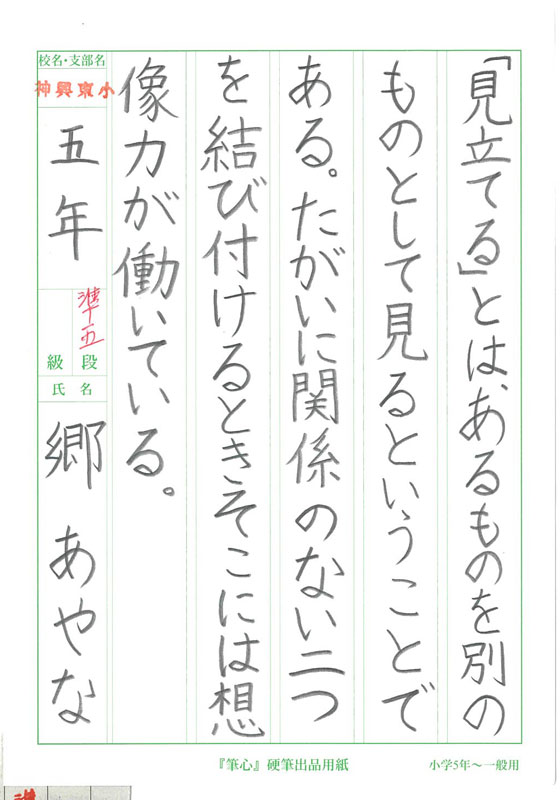 「見立てる」とは、あるものを別の
ものとして見るということで
ある。たがいに関係のない二つ
を結び付けるときそこには想
像力が働いている。
校名・支部名
神興東小
五年
準五
段
級
氏名
郷 あやな
『筆心』硬筆出品用紙
小学5年〜一般用